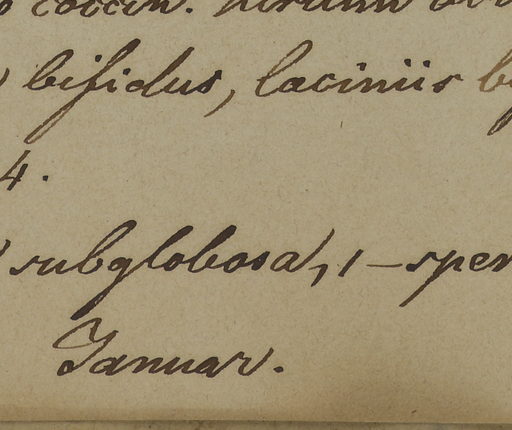 coccin.
bifidus, laciniis
4.
subglobosa, 1-sper
Januar.